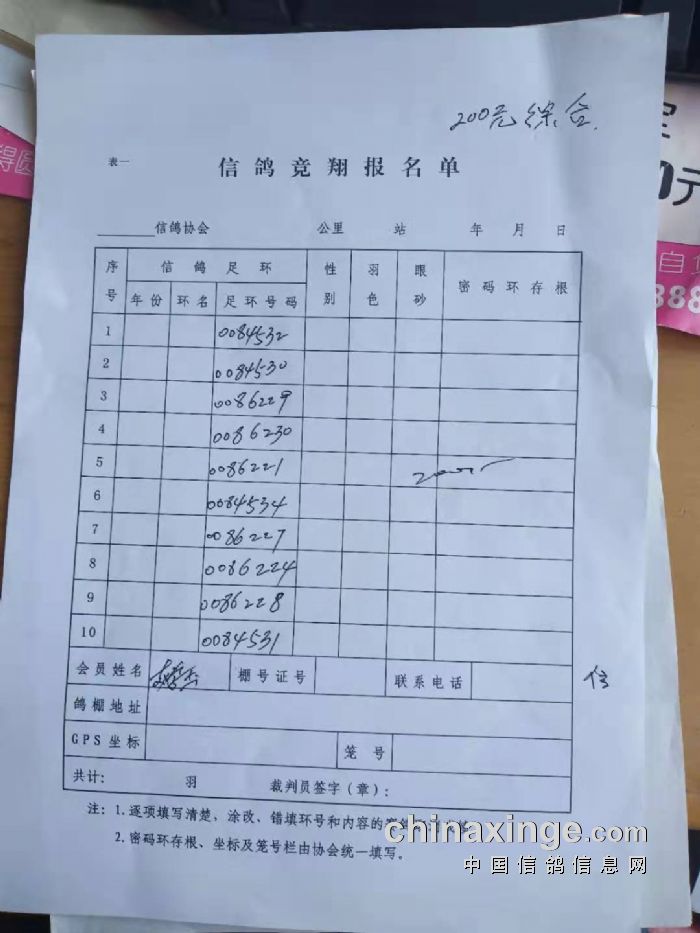 200元综合
表一
信鸽竞翔报名单
信鸽协会 公里 站 年 月 日
序号 信鸽足环 性别 羽色 眼砂 密码环存根
年份 环名 足环号码
1 0084532
2 0084530
3 0086229
4 0086230
5 0086221
6 0084534
7 0086227
8 0086224
9 0086228
10 0084531
会员姓名 棚号证号 联系电话
信
鸽棚地址
GPS坐标 笼号
共计： 羽 裁判员签字（章）：
注：1.逐项填写清楚、涂改、错填环号和内容的
2.密码环存根、坐标及笼号栏由协会统一填写。
chinaxinge.com
中国信鸽信息网
元
自
888